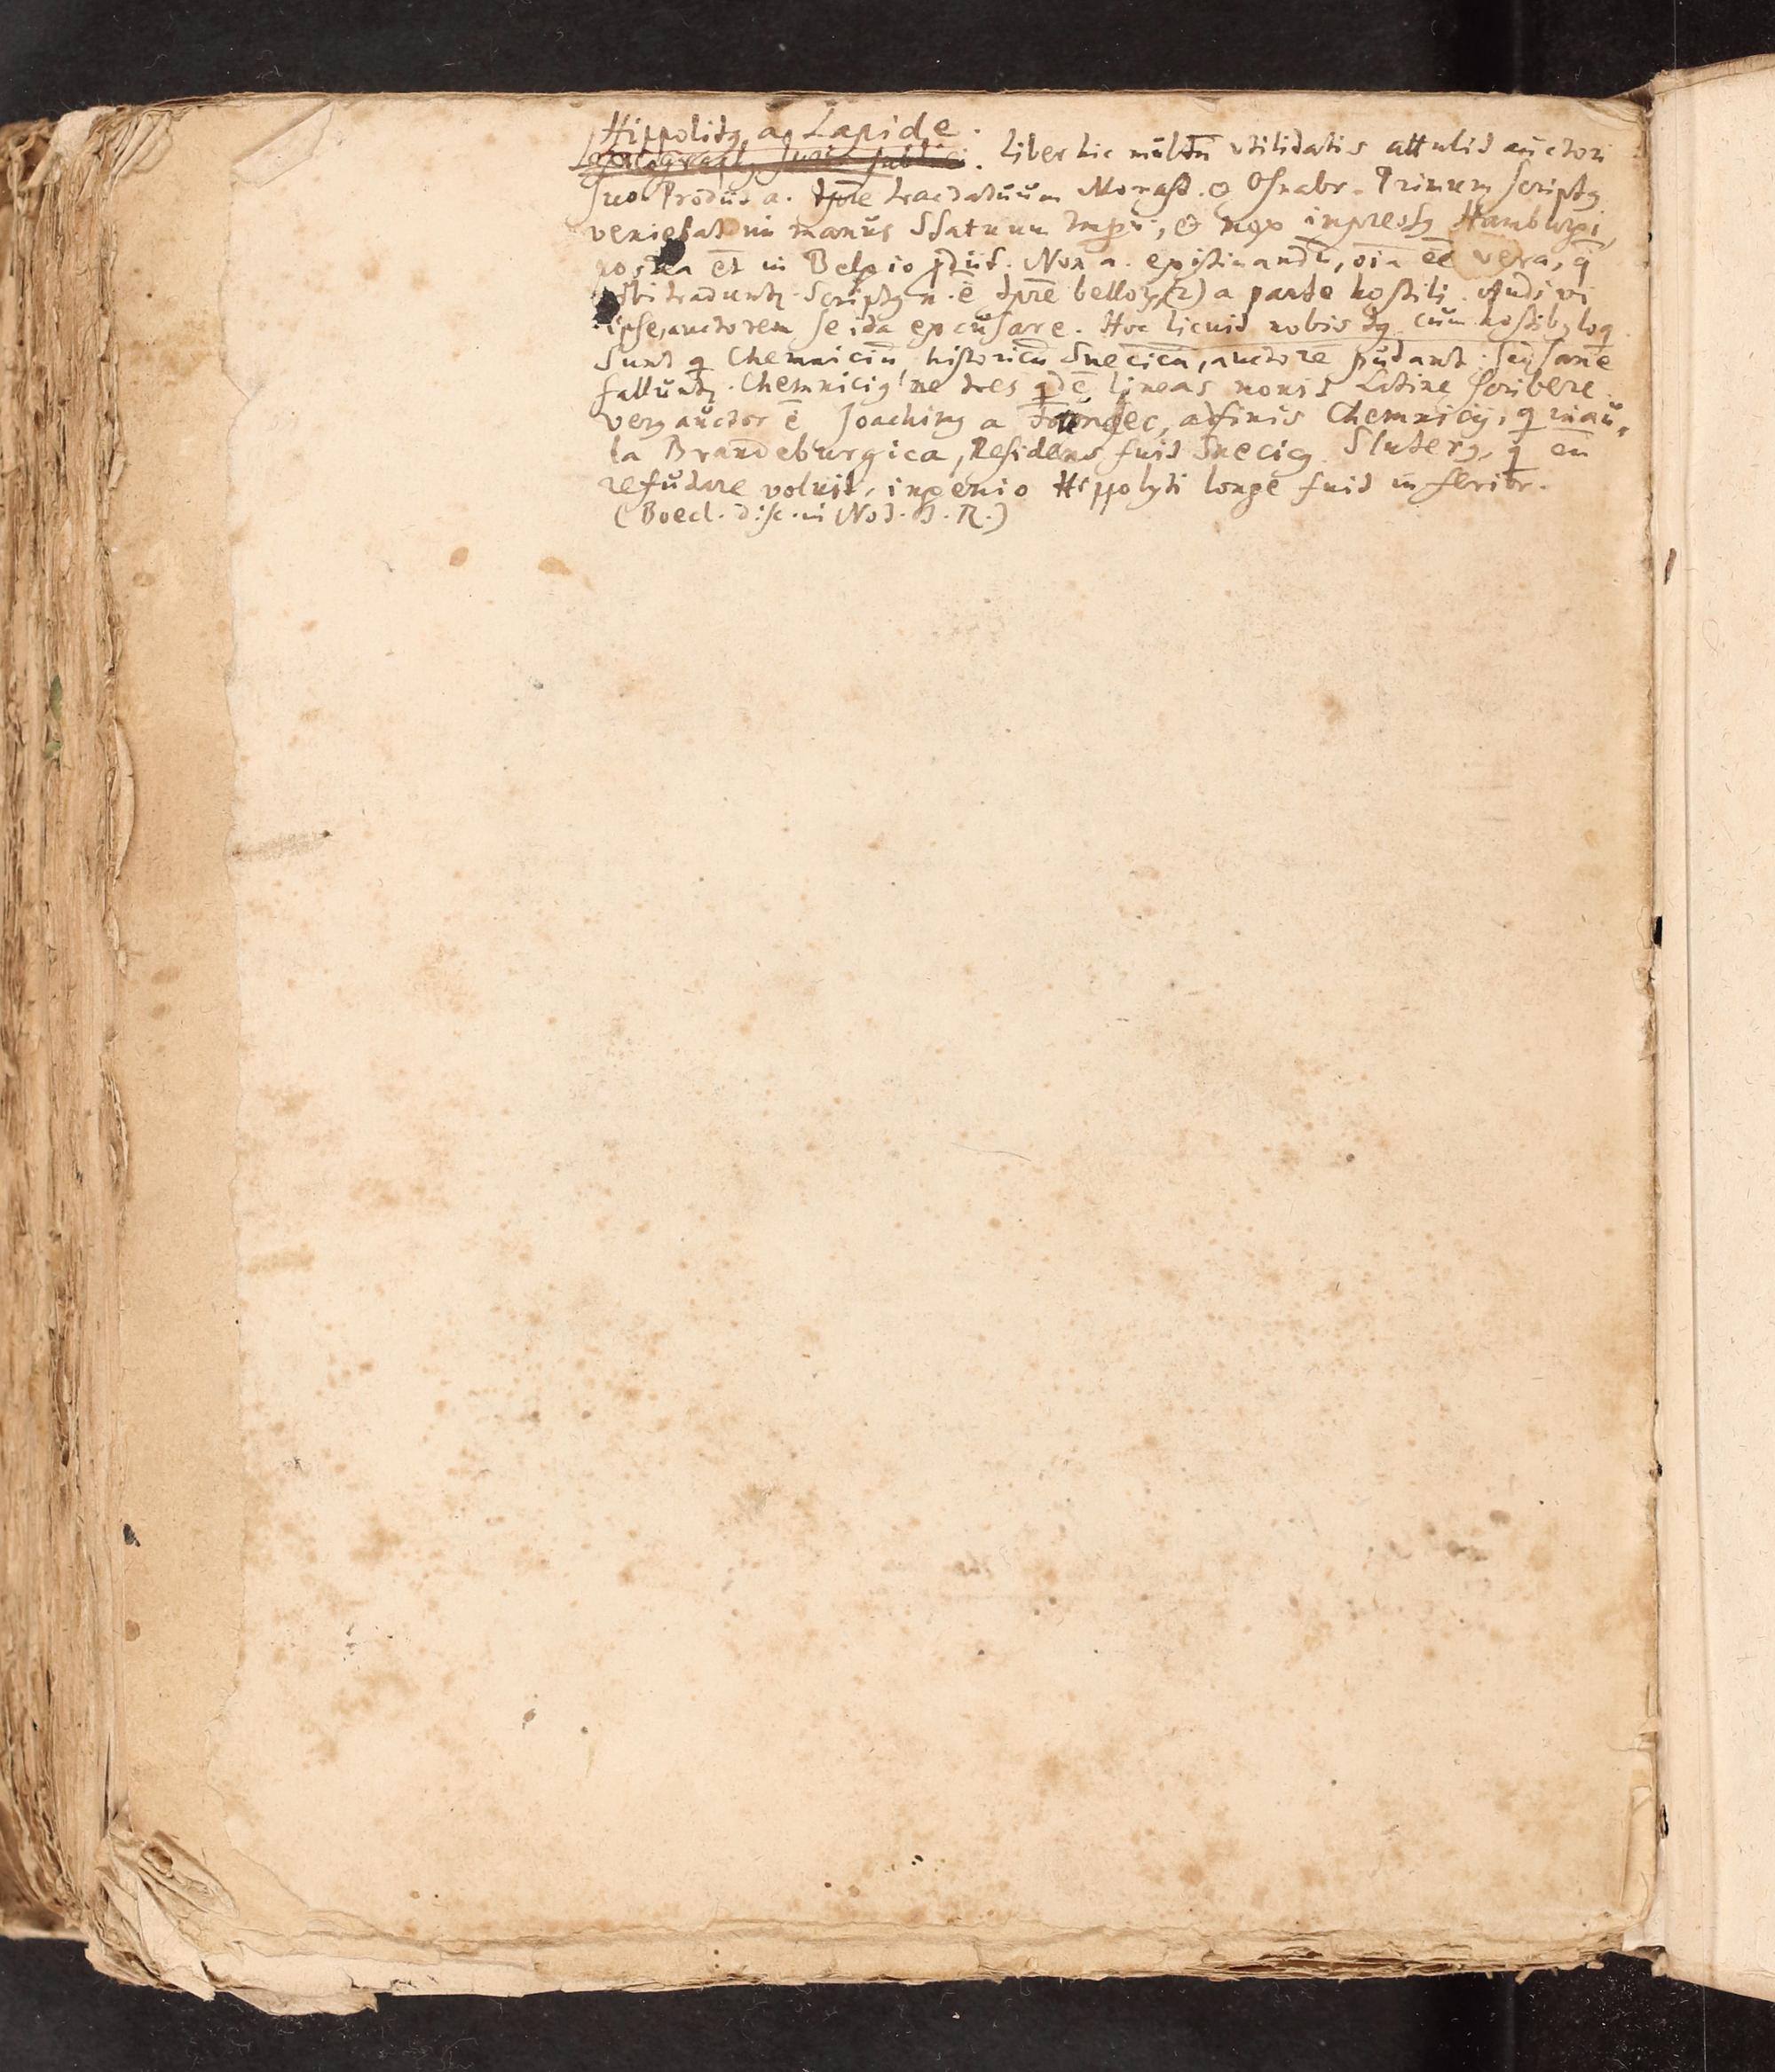 Hippolitꝰ a Lapide.
Liber hic multũ utilitatis attulit auctori
suo Prodiit a. tp̄re tractatuum Monast. & Osnabr. Primum scriptꝰ
veniebat in manus Statuum Imp̄ri, & mox impressꝰ Hamburgi,
postea ēt in Belgio ꝓdiit. Non a. existimandũ, oīa eē vera, q̄
ibi tradunt᷑. Scriptꝰ n. ē tp̄re belli, (2) a parte hostili. Audivi
ipse, auctorem se ita excusare. Hoc licuit nobis cum hostibꝰ loq̄
Sunt q̄ Chemniciũ, historicũ Suecicũ, auctorē putant. Sed sane
fallunt᷑. Chemniciꝰ ne tres qdē lineas novit Latine scribere.
verꝰ auctor ē Joachimꝰ a , affinis Chemnicij, q in au„
la Brandeburgica, Residens fuit Sueciꝰ. Sluterꝰ, q eũ
refutare voluit, ingenio Hippolyti longe fuit inferior.
(Boecl. disc. in Not. I. R.)